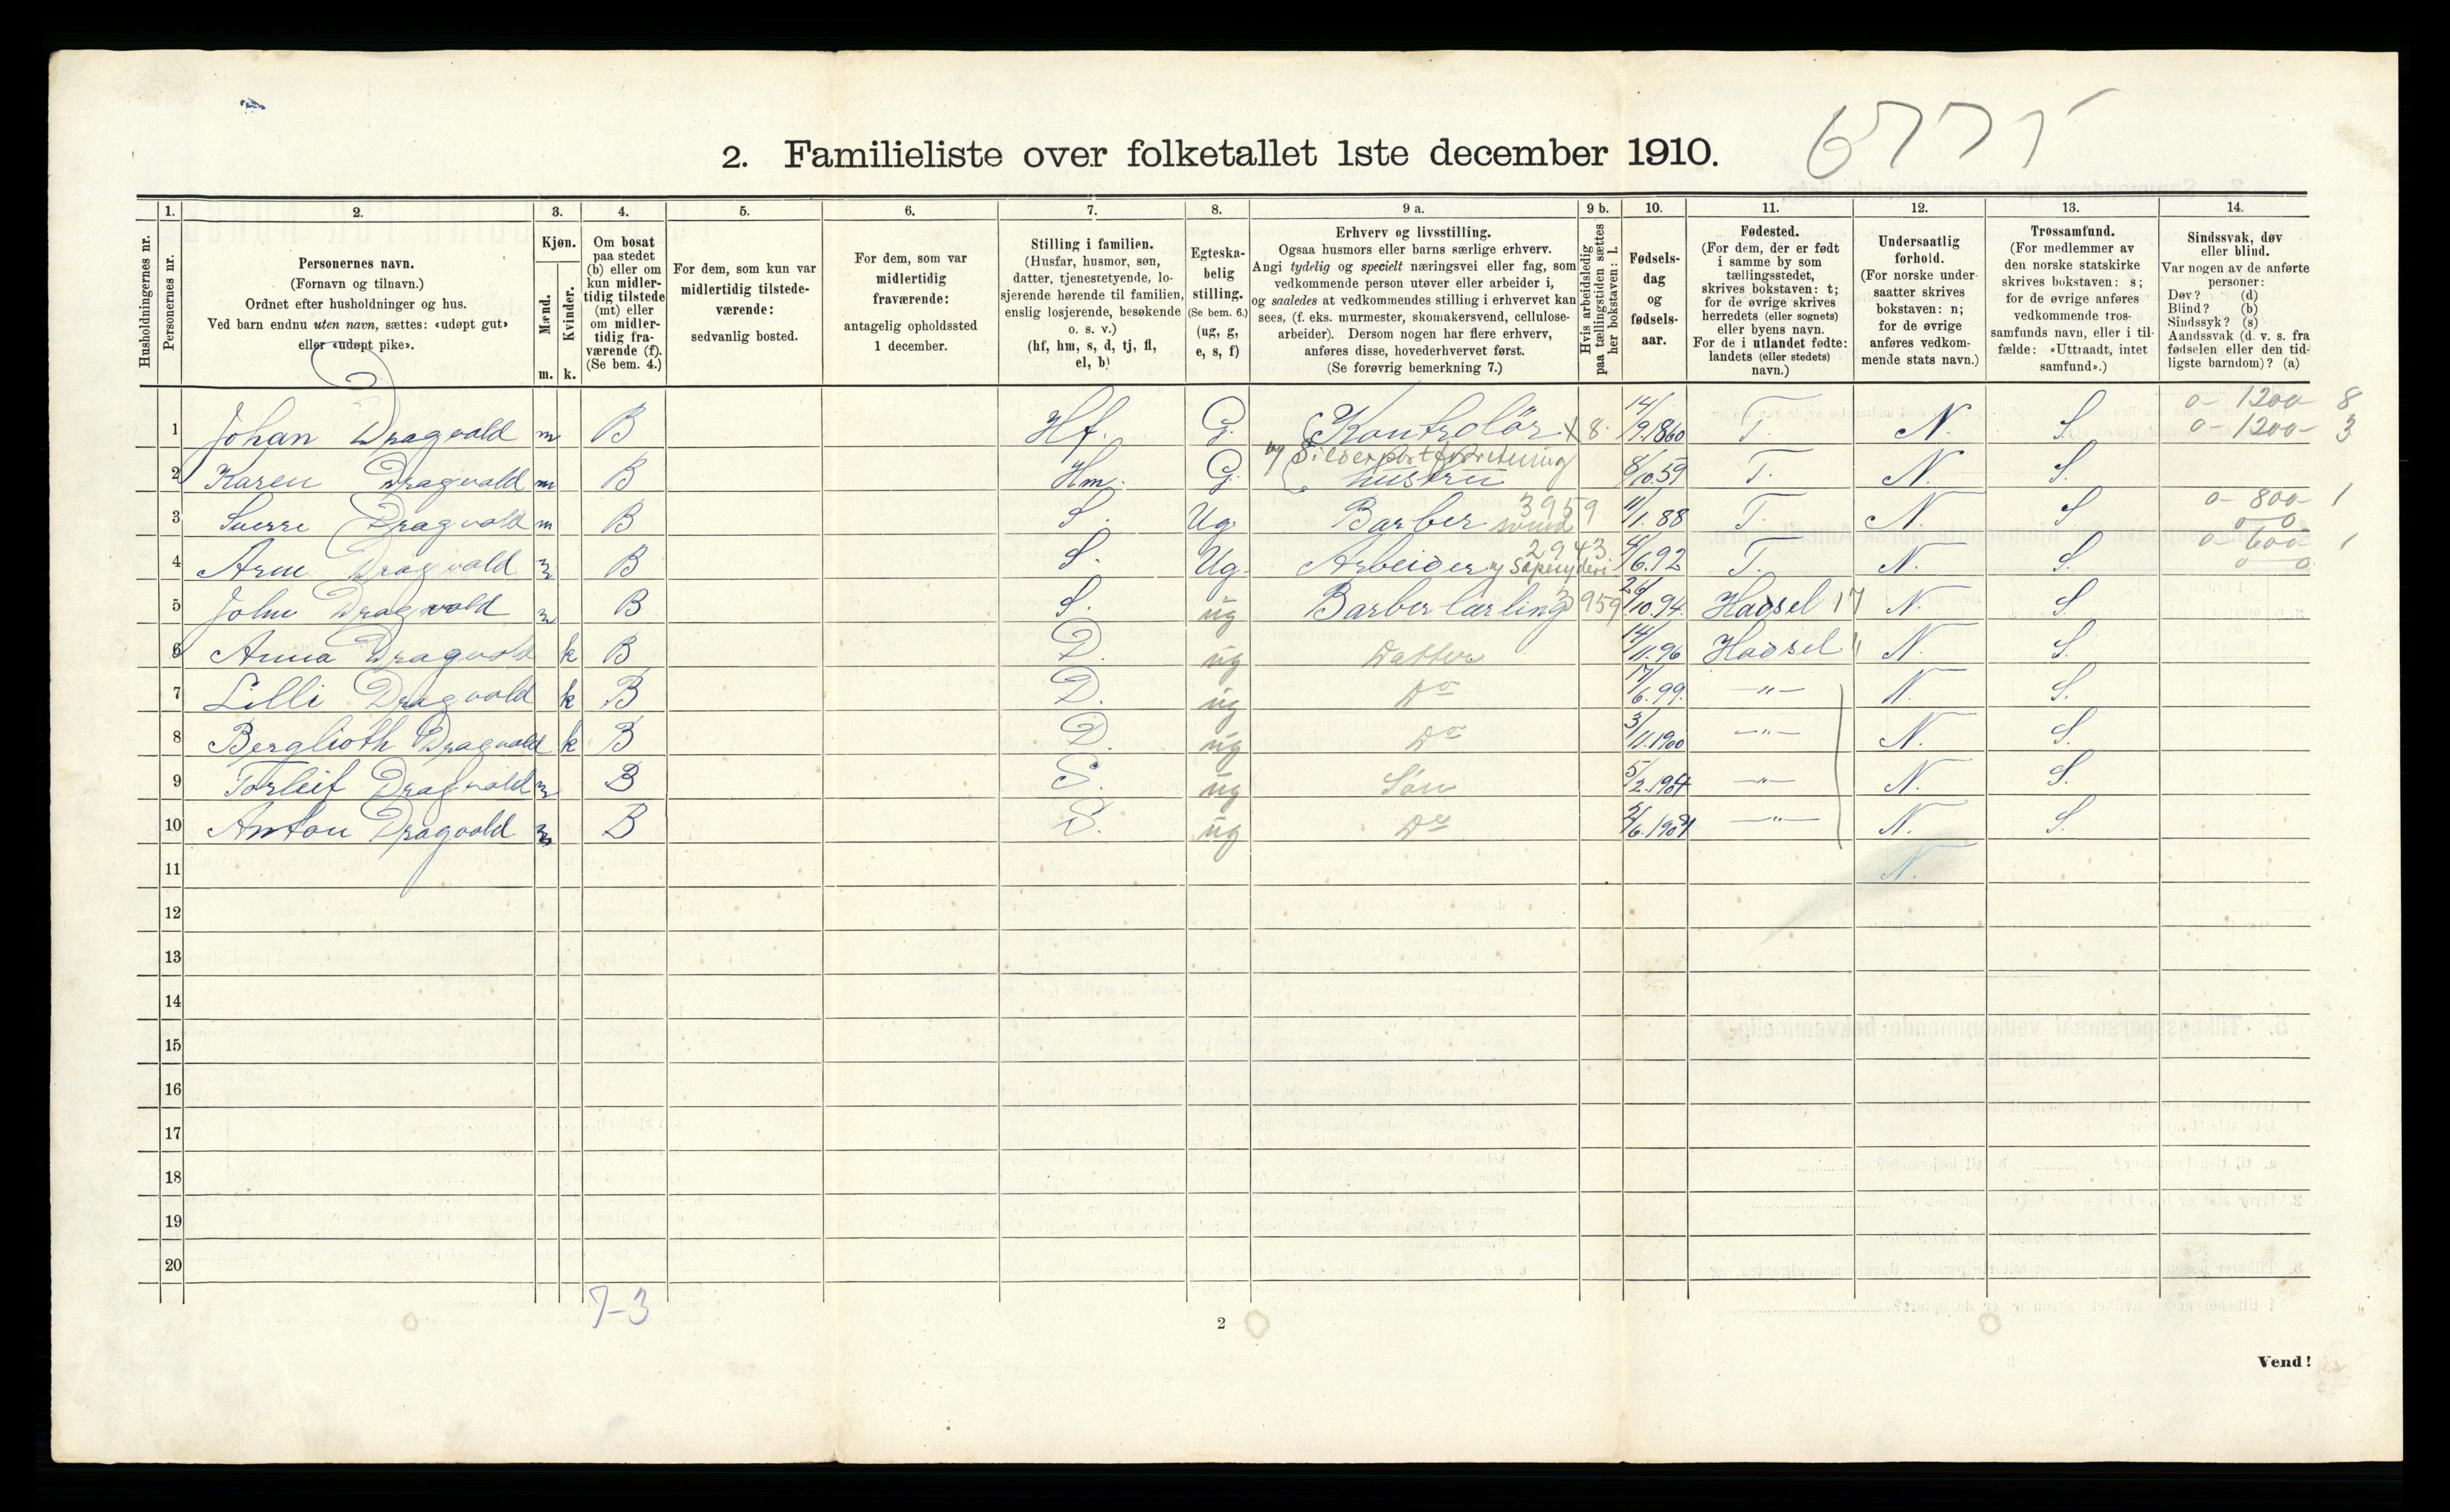 6775
2. Familieliste over folketallet 1ste december 1910.
Husholdningernes nr.
1.
Personernes nr.
2.
Personernes navn.
(Fornavn og tilnavn.)
Ordnet efter husholdninger og hus.
Ved barn endnu uten navn, sættes: «udøpt gut»
eller «udøpt pike».
3.
Kjøn.
Mænd.
Kvinder.
m. k.
4.
Om bosat
paa stedet
(b) eller om
kun midler-
tidig tilstede
(mt) eller
om midler-
tidig fra-
værende (f).
(Se bem. 4.)
5.
For dem, som kun var
midlertidig tilstede-
værende:
sedvanlig bosted.
6.
For dem, som var
midlertidig
fraværende:
antagelig opholdssted
1 december.
7.
Stilling i familien.
(Husfar, husmor, søn,
datter, tjenestetyende, lo-
sjerende hørende til familien,
enslig losjerende, besøkende
o. s. v.)
(hf, hm, s, d, tj, fl,
el, b)
8.
Egteska-
belig
stilling.
(Se bem. 6.)
(ug, g,
e, s, f)
9 a.
Erhverv og livsstilling.
Ogsaa husmors eller barns særlige erhverv.
Angi tydelig og specielt næringsvei eller fag, som
vedkommende person utøver eller arbeider i,
og saaledes at vedkommendes stilling i erhvervet kan
sees, (f. eks. murmester, skomakersvend, cellulose-
arbeider). Dersom nogen har flere erhverv,
anføres disse, hovederhvervet først.
(Se forøvrig bemerkning 7.)
9 b.
Hvis arbeidsledig
paa tællingstiden sættes
her bokstaven: l.
10.
Fødsels-
dag
og
fødsels-
aar.
11.
Fødested.
(For dem, der er født
i samme by som
tællingsstedet,
skrives bokstaven: t;
for de øvrige skrives
herredets (eller sognets)
eller byens navn.
For de i utlandet fødte:
landets (eller stedets)
navn.)
12.
Undersaatlig
forhold.
(For norske under-
saatter skrives
bokstaven: n;
for de øvrige
anføres vedkom-
mende stats navn.)
13.
Trossamfund.
(For medlemmer av
den norske statskirke
skrives bokstaven: s;
for de øvrige anføres
vedkommende tros-
samfunds navn, eller i til-
fælde: «Uttraadt, intet
samfund».)
14.
Sindssvak, døv
eller blind.
Var nogen av de anførte
personer:
Døv? (d)
Blind? (b)
Sindssyk? (s)
Aandssvak (d. v. s. fra
fødselen eller den tid-
ligste barndom)? (a)
1 Johan Dragvold m B Hf. G. Kontrolör x 8. 14/9.1860 T. N. S. 0 - 1200 - 8
0 - 1200 - 3
2 Karen Dragvold m B Hm. G. hustru 8/10.59 T. N. S.
3 Sverre Dragvold m B S. Ug. Barber svend 3959 11/1.88 T. N. S 0 - 800 - 1
0 0
4 Arne Dragvold m B S. Ug. Arbeider 2943. 4/6.92 T. N. S. 0 - 600 - 1
0 0
5 John Dragvold m B S. ug Barberlærling 3959 26/10.94. Hadsel 17 N. S.
6 Anna Dragvold k B D. ug Datter 14/11.96 Hadsel " N. S.
7 Lilli Dragvold k B D. ug Do 17/6.99. -"- N S.
8 Berglioth Dragvold k B D. ug Do 3/11.1900 -"- N. S.
9 Torleif Dragvold m B S. ug Søn 5/2.1904 -"- N. S.
10 Anton Dragvold m B S. ug Do -"- N. S.
11 N.
12
13
14
15
16
17
18
19
20
7-3
2
Vend!